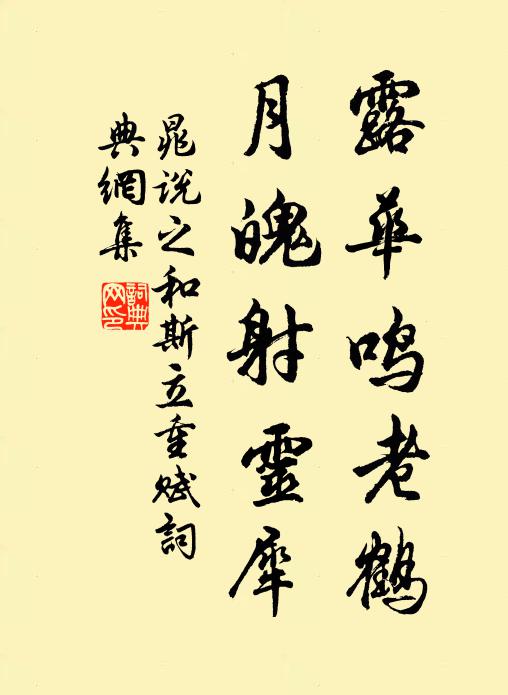 露華鳴老鶴
月魄射靈犀
晁說之和斯立重賦詞
典網集
詞典网印